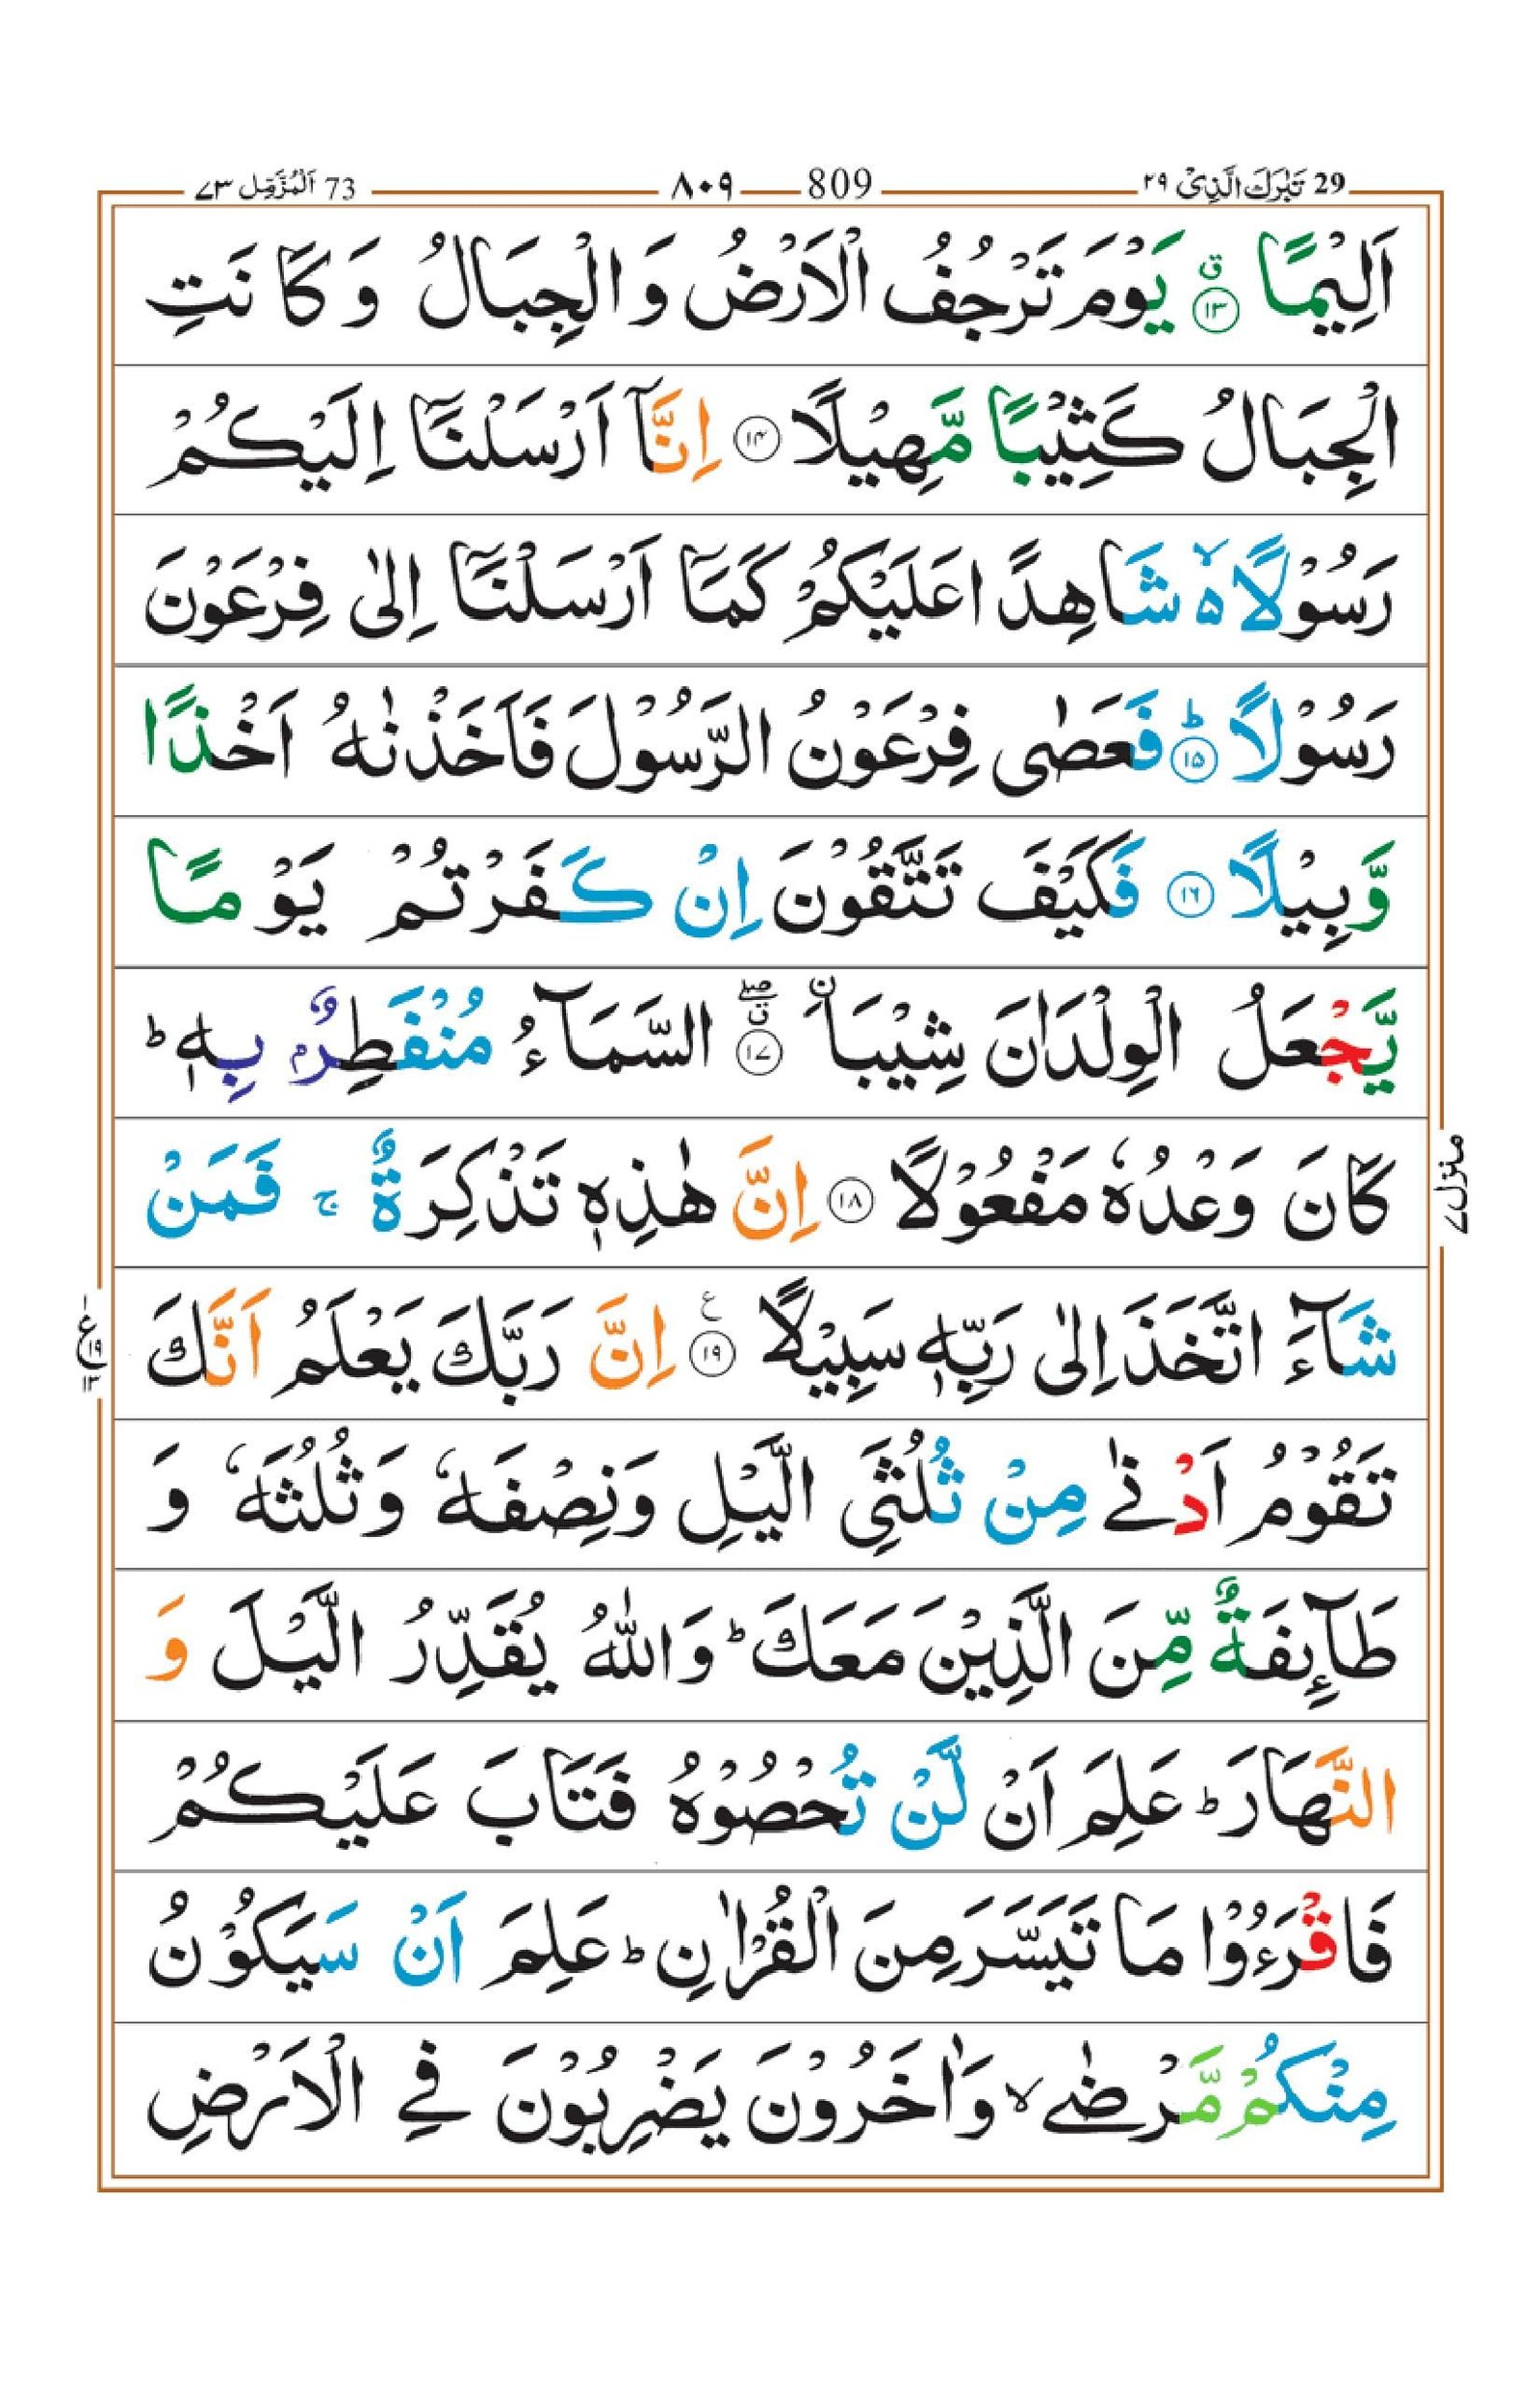 29 تَبٰرَكَ الَّذِیْ ۲۹ 809 ۸۰۹ 73 اَلْمُزَّمِّل ۷۳
اَلِیْمًا ۱۳ ق یَوْمَ تَرْجُفُ الْاَرْضُ وَ الْجِبَالُ وَ كَانَتِ
الْجِبَالُ كَثِیْبًا مَّهِیْلًا ۱۴ اِنَّاۤ اَرْسَلْنَاۤ اِلَیْكُمْ
رَسُوْلًا ۵ۙ شَاهِدًا عَلَیْكُمْ كَمَاۤ اَرْسَلْنَاۤ اِلٰى فِرْعَوْنَ
رَسُوْلًا ؕ ۱۵ فَعَصٰى فِرْعَوْنُ الرَّسُوْلَ فَاَخَذْنٰهُ اَخْذًا
وَّبِیْلًا ۱۶ فَكَیْفَ تَتَّقُوْنَ اِنْ كَفَرْتُمْ یَوْمًا
یَّجْعَلُ الْوِلْدَانَ شِیْبَاۨ ۱۷ ۖ ق السَّمَآءُ مُنْفَطِرٌۢ بِهٖ ؕ
كَانَ وَعْدُهٗ مَفْعُوْلًا ۱۸ اِنَّ هٰذِهٖ تَذْكِرَةٌ ۚ فَمَنْ
شَآءَ اتَّخَذَ اِلٰى رَبِّهٖ سَبِیْلًا ۱۹ ع اِنَّ رَبَّكَ یَعْلَمُ اَنَّكَ
تَقُوْمُ اَدْنٰے مِنْ ثُلُثَیِ الَّیْلِ وَنِصْفَهٗ وَثُلُثَهٗ وَ
طَآىِٕفَةٌ مِّنَ الَّذِیْنَ مَعَكَ ؕ وَاللّٰهُ یُقَدِّرُ الَّیْلَ وَ
النَّهَارَ ؕ عَلِمَ اَنْ لَّنْ تُحْصُوْهُ فَتَابَ عَلَیْكُمْ
فَاقْرَءُوْا مَا تَیَسَّرَ مِنَ الْقُرْاٰنِ ؕ عَلِمَ اَنْ سَیَكُوْنُ
مِنْكُمْ مَّرْضٰے ۙ وَاٰخَرُوْنَ یَضْرِبُوْنَ فِے الْاَرْضِ
منزل ۷
۱
ع ۱۹
۱۳